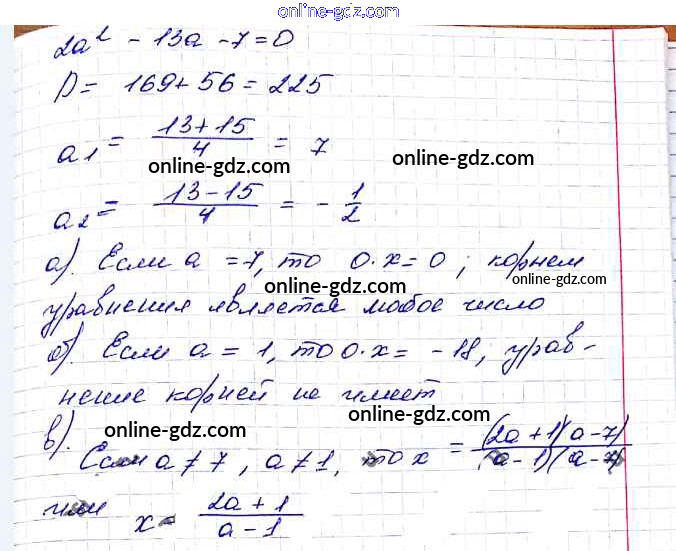 online-gdz.com
2a² - 13a - 7 = 0
D = 169 + 56 = 225
a₁ = (13+15)/4 = 7
online-gdz.com
online-gdz.com
a₂ = (13-15)/4 = -1/2
а). Если a = 7, то 0·x = 0; корнем
online-gdz.com
online-gdz.com
уравнения является любое число
б). Если a = 1, то 0·x = -18; урав-
нение корней не имеет
online-gdz.com
online-gdz.com
в). Если a ≠ 7, a ≠ 1, то x = (2a+1)(a-7)/(a-1)(a-7)
или x = (2a+1)/(a-1)